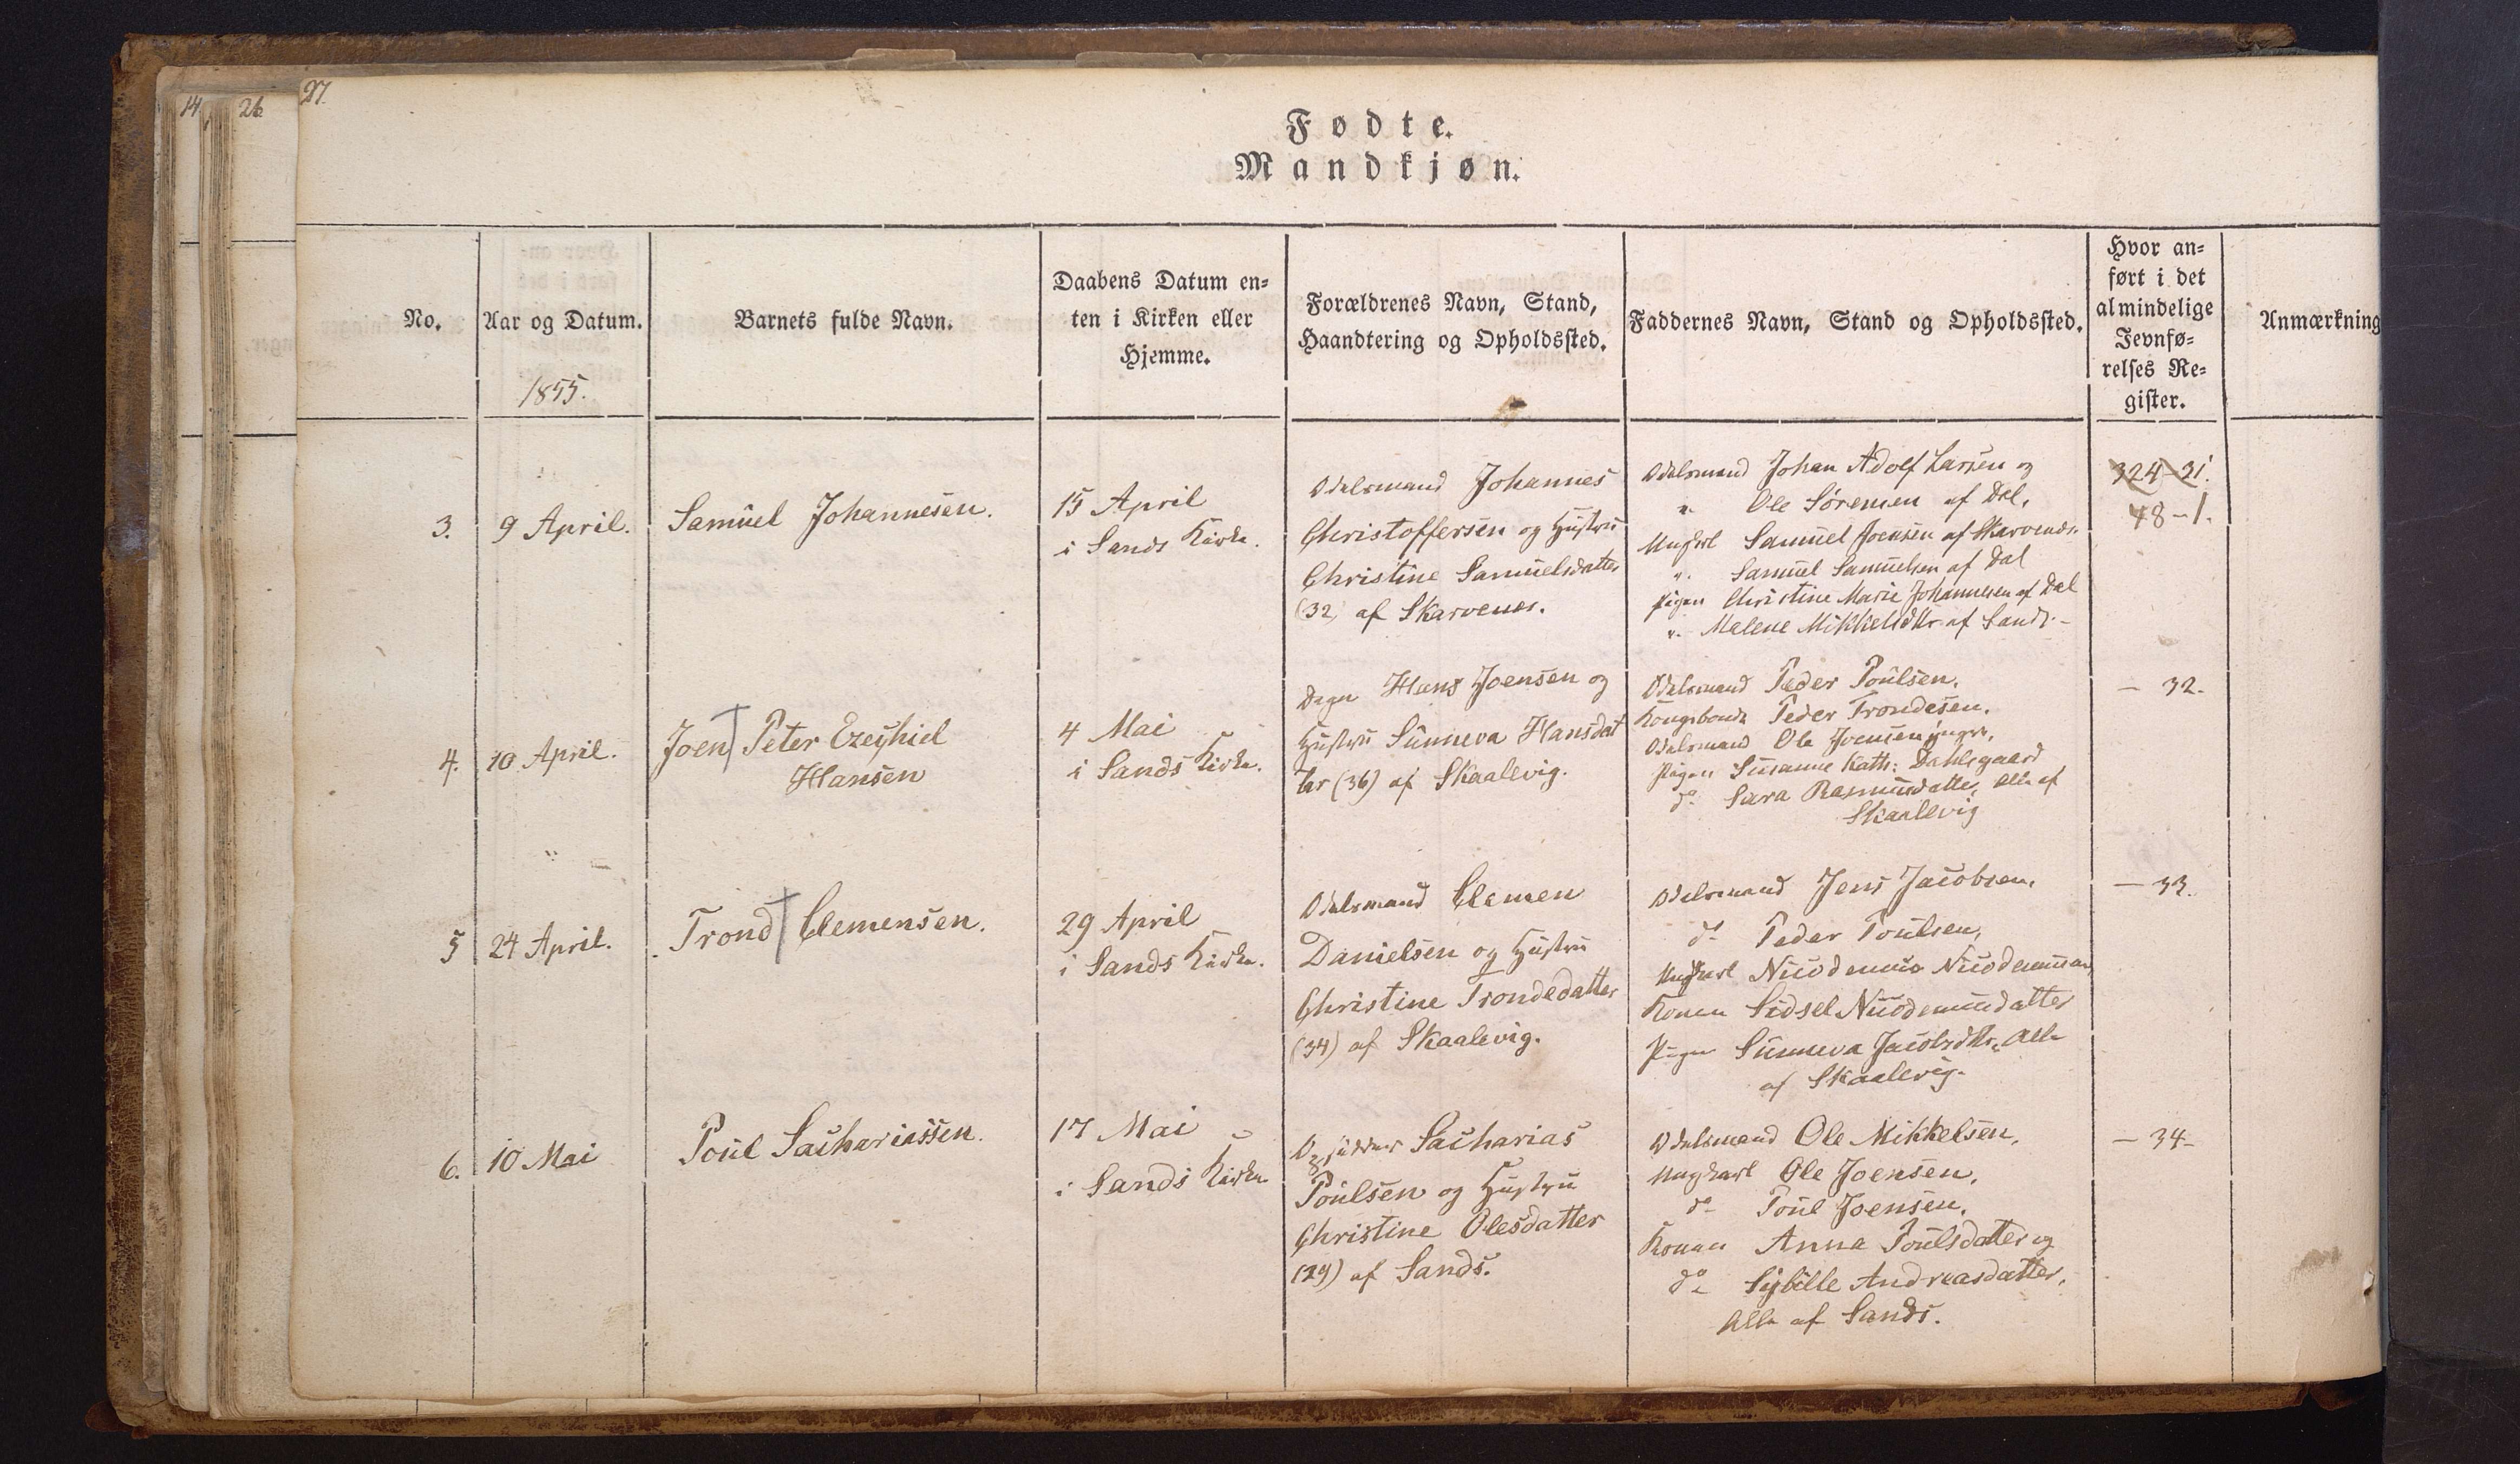 14
26
27.
Fødte.
Mandkjøn.
No.
Aar og Datum.
1855.
Barnets fulde Navn.
Daabens Datum en-
ten i Kirken eller
Hjemme.
Forældrenes Navn, Stand,
Haandtering og Opholdssted.
Faddernes Navn, Stand og Opholdssted.
Hvor an-
ført i det
almindelige
Jevnfø-
relses Re-
gister.
Anmærkning
3.
9 April.
Samuel Johannesen.
15 April
i Sands Kirke.
Odelsmand Johannes
Christoffersen og Hustru
Christine Samuelsdatter
(32) af Skarvenes.
Odelsmand Johan Adolf Larsen og
" Ole Sørensen af Dal,
Ungkarl Samuel Joensen af Skarvenes.
". Samuel Samuelsen af Dal
Pigen Christine Marie Johannesen af Dal
". Malene Mikkelsdtr. af Sands.-
324-31.
48-1.
4.
10 April.
Joen Peter Ezechiel
Hansen
4 Mai
i Sands Kirke.
Degn Hans Joensen og
Hustru Sunneva Hansdat
ter (36) af Skaalevig.
Odelsmand Peder Poulsen.
Kongsbonde Peder Trondesen.
Odelsmand Ole Joensen yngre,
Pigen Susanne Kath: Dahlsgaard
do. Sara Rasmusdatter, Alle af
Skaalevig
- 32.
5
24 April.
Trond Clemensen.
29 April
i Sands Kirke.
Odelsmand Clemen
Danielsen og Hustru
Christine Trondedatter
(34) af Skaalevig.
Odelsmand Jens Jacobsen.
do Peder Poulsen,
Ungkarl Nicodemus Nicodemussen,
Konen Sidsel Nicodemusdatter
Pigen Sunneva Jacobsdtr. Alle
af Skaalevig.
- 33.
6.
10 Mai
Poul Sachariassen.
17 Mai
i Sands Kirke
Sacharias
Poulsen og Hustru
Christine Olesdatter
(29) af Sands.
Odelsmand Ole Mikkelsen,
Ungkarl Ole Joensen,
do Poul Joensen,
Konen Anna Poulsdatter og
do Sybille Andreasdatter,
Alle af Sands.
- 34-